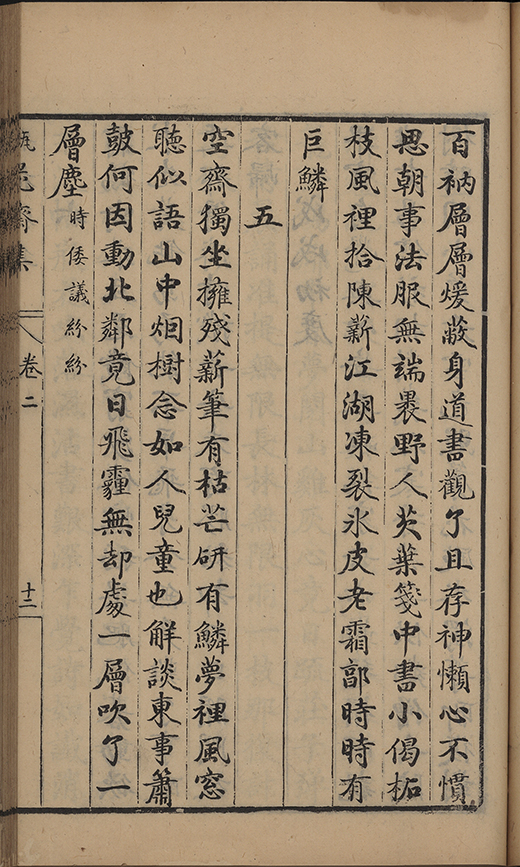 百衲層層煖蔽身道書觀了且存神懶心不慣
思朝事法服無端褁野人芡葉箋中書小偈柘
枝風裡拾陳薪江湖凍裂氷皮老霜郶時時有
巨鱗
五
空齋獨坐擁殘薪筆有枯芒研有鱗夢裡風窓
聽似語山中烟樹念如人兒童也觧談東事簫
皷何因動北鄰竟日飛霾無却處一層吹了一
層塵時倭議紛紛
瓶花齋集
卷二
十二